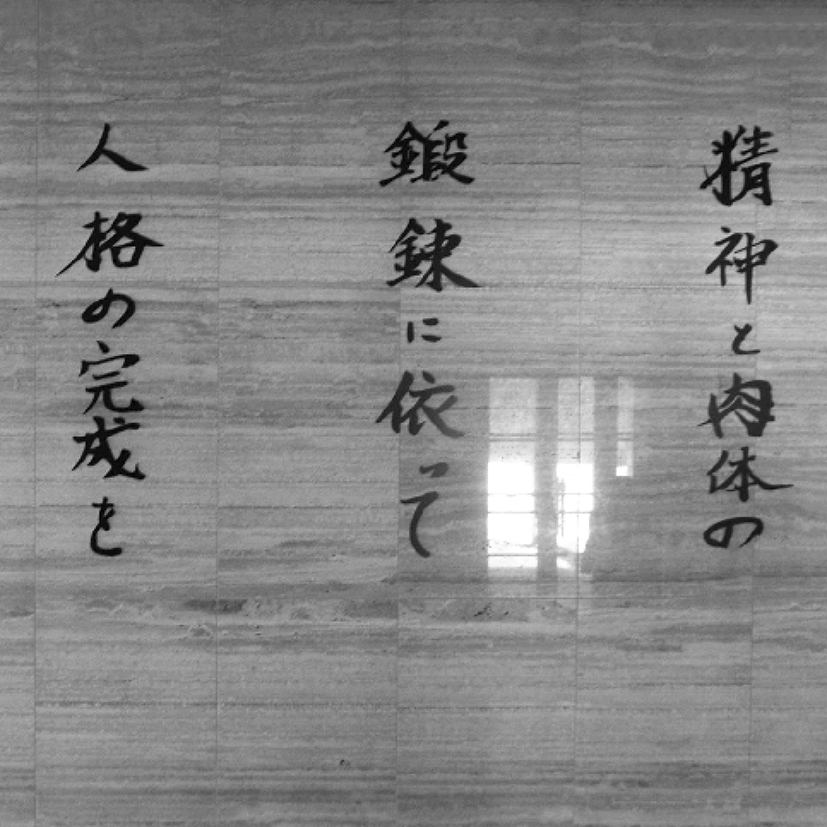 精神と肉体の
鍛錬に依って
人格の完成を